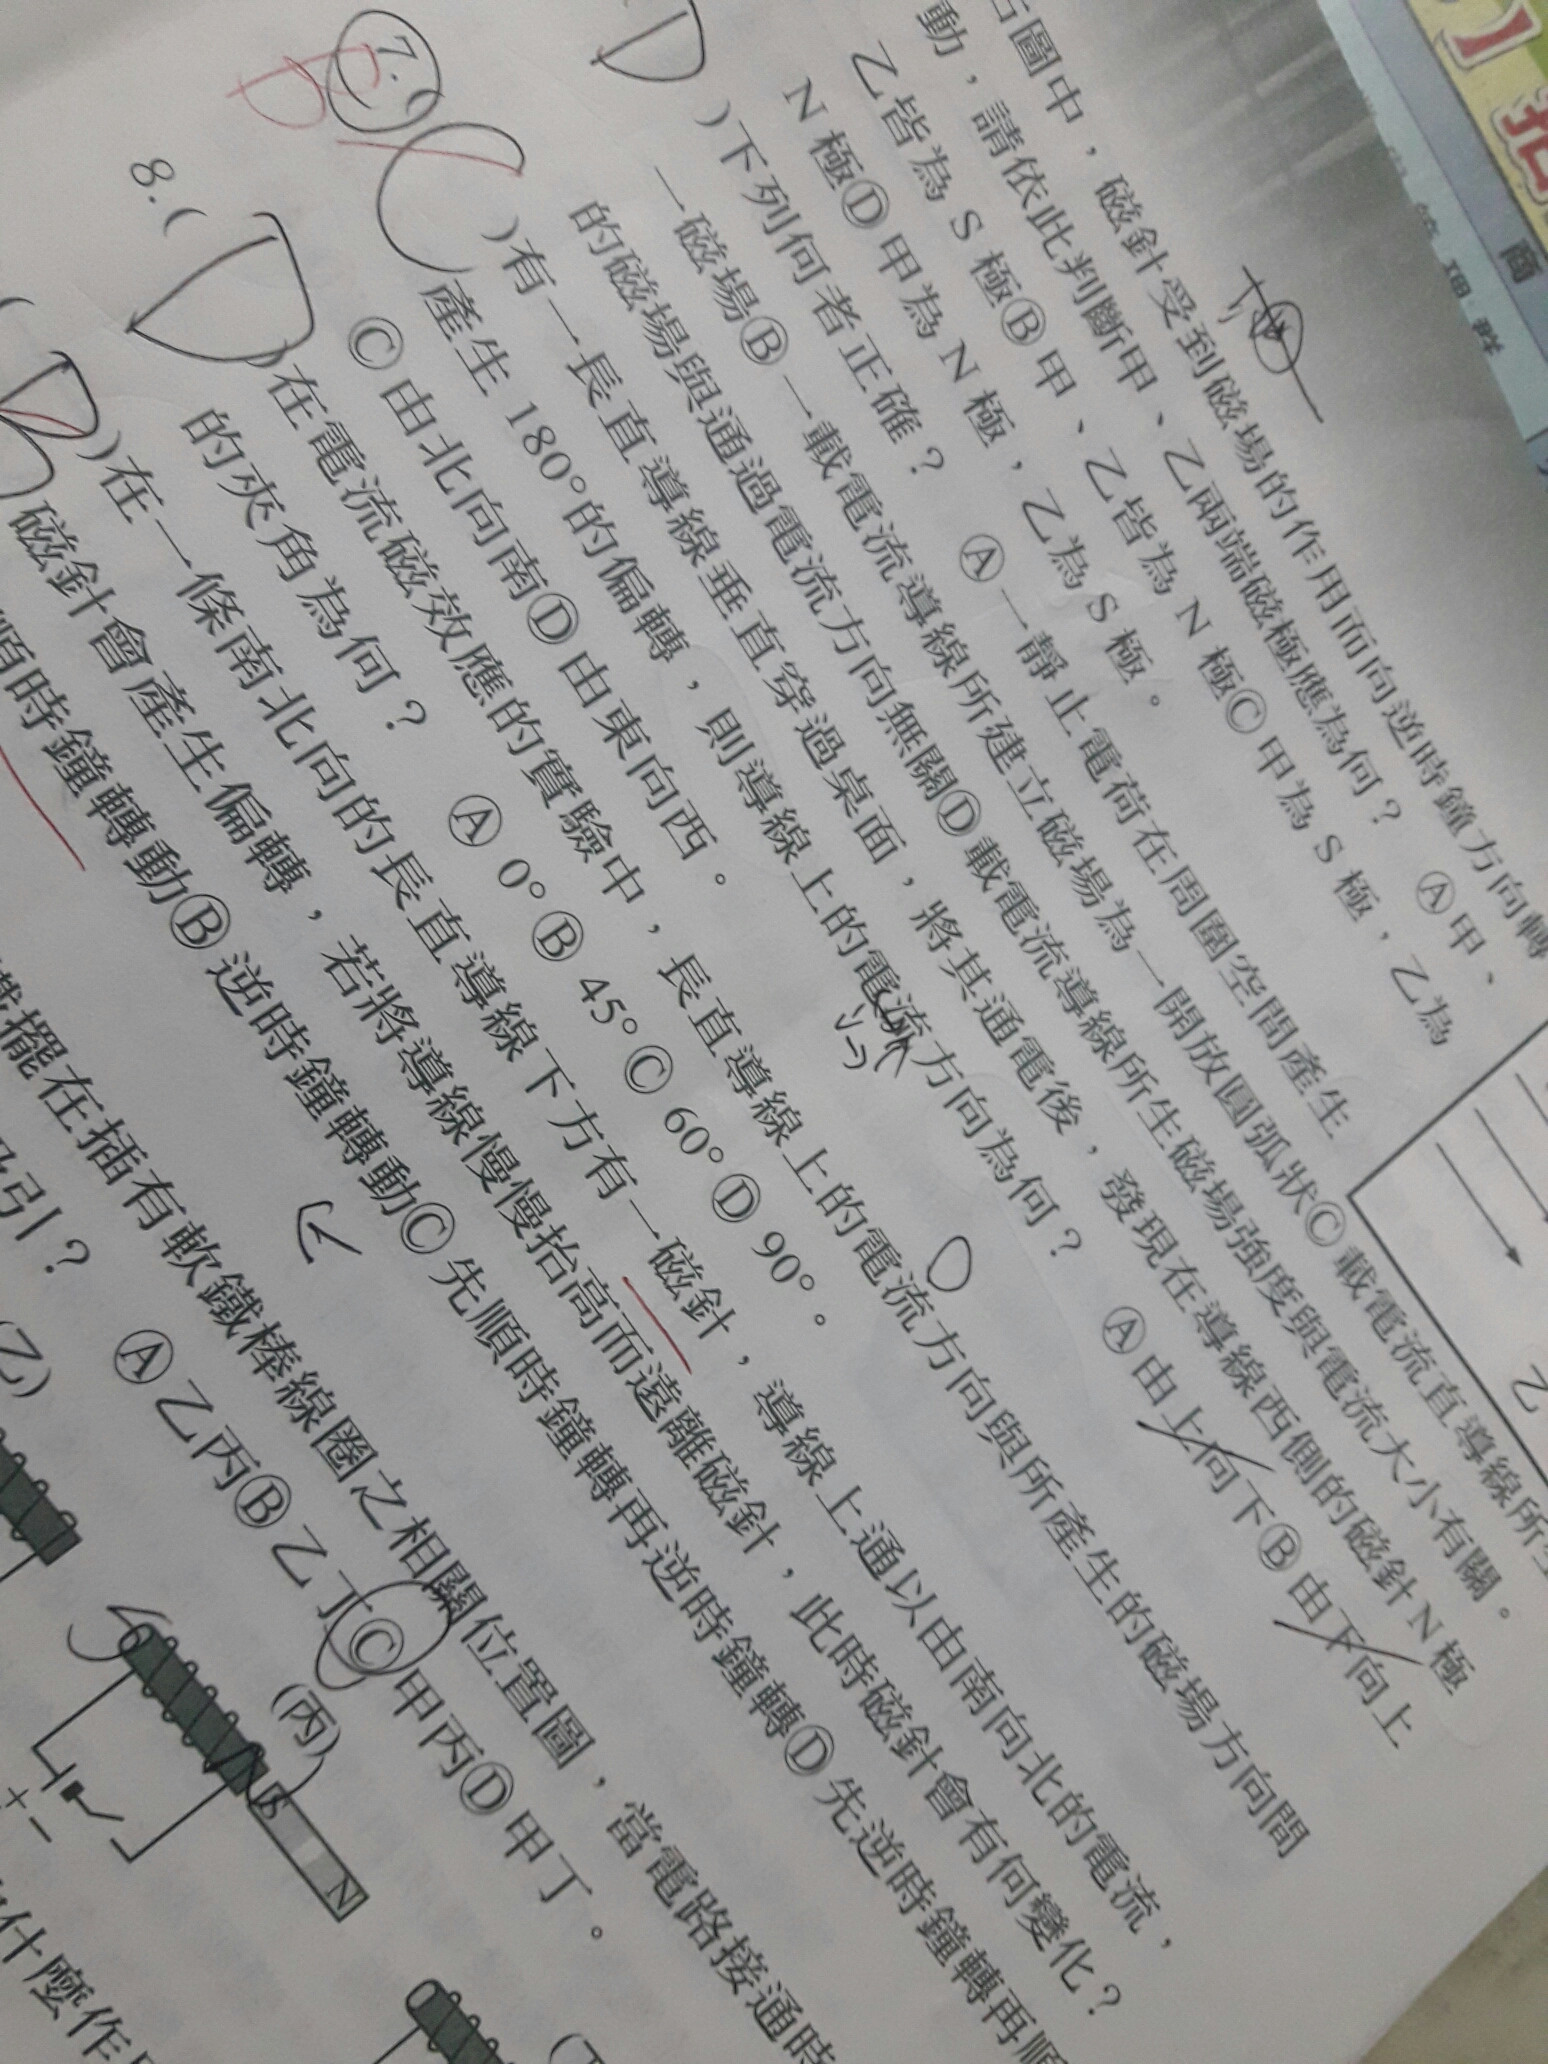 右圖中，磁針受到磁場的作用而向逆時鐘方向轉
動，請依此判斷甲、乙兩端磁極應為何？ Ⓐ甲、
乙皆為 S 極Ⓑ甲、乙皆為 N 極Ⓒ甲為 S 極，乙為
N 極Ⓓ甲為 N 極，乙為 S 極。
D )下列何者正確？ Ⓐ一靜止電荷在周圍空間產生
一磁場Ⓑ一載電流導線所建立磁場為一開放圓弧狀Ⓒ載電流直導線所生
的磁場與通過電流方向無關Ⓓ載電流導線所生磁場強度與電流大小有關。
7. )有一長直導線垂直穿過桌面，將其通電後，發現在導線西側的磁針 N 極
產生 180°的偏轉，則導線上的電流方向為何？ Ⓐ由上向下Ⓑ由下向上
Ⓒ由北向南Ⓓ由東向西。
8.( D )在電流磁效應的實驗中，長直導線上的電流方向與所產生的磁場方向間
的夾角為何？ Ⓐ 0°Ⓑ 45°Ⓒ 60°Ⓓ 90°。
( )在一條南北向的長直導線下方有一磁針，導線上通以由南向北的電流，
磁針會產生偏轉，若將導線慢慢抬高而遠離磁針，此時磁針會有何變化？
順時鐘轉動Ⓑ逆時鐘轉動Ⓒ先順時鐘轉再逆時鐘轉Ⓓ先逆時鐘轉再順
擺在插有軟鐵棒線圈之相關位置圖，當電路接通時
吸引？ Ⓐ乙丙Ⓑ乙丁Ⓒ甲丙Ⓓ甲丁。
(乙)
(丙)
N
+ −
什麼作
乙
商